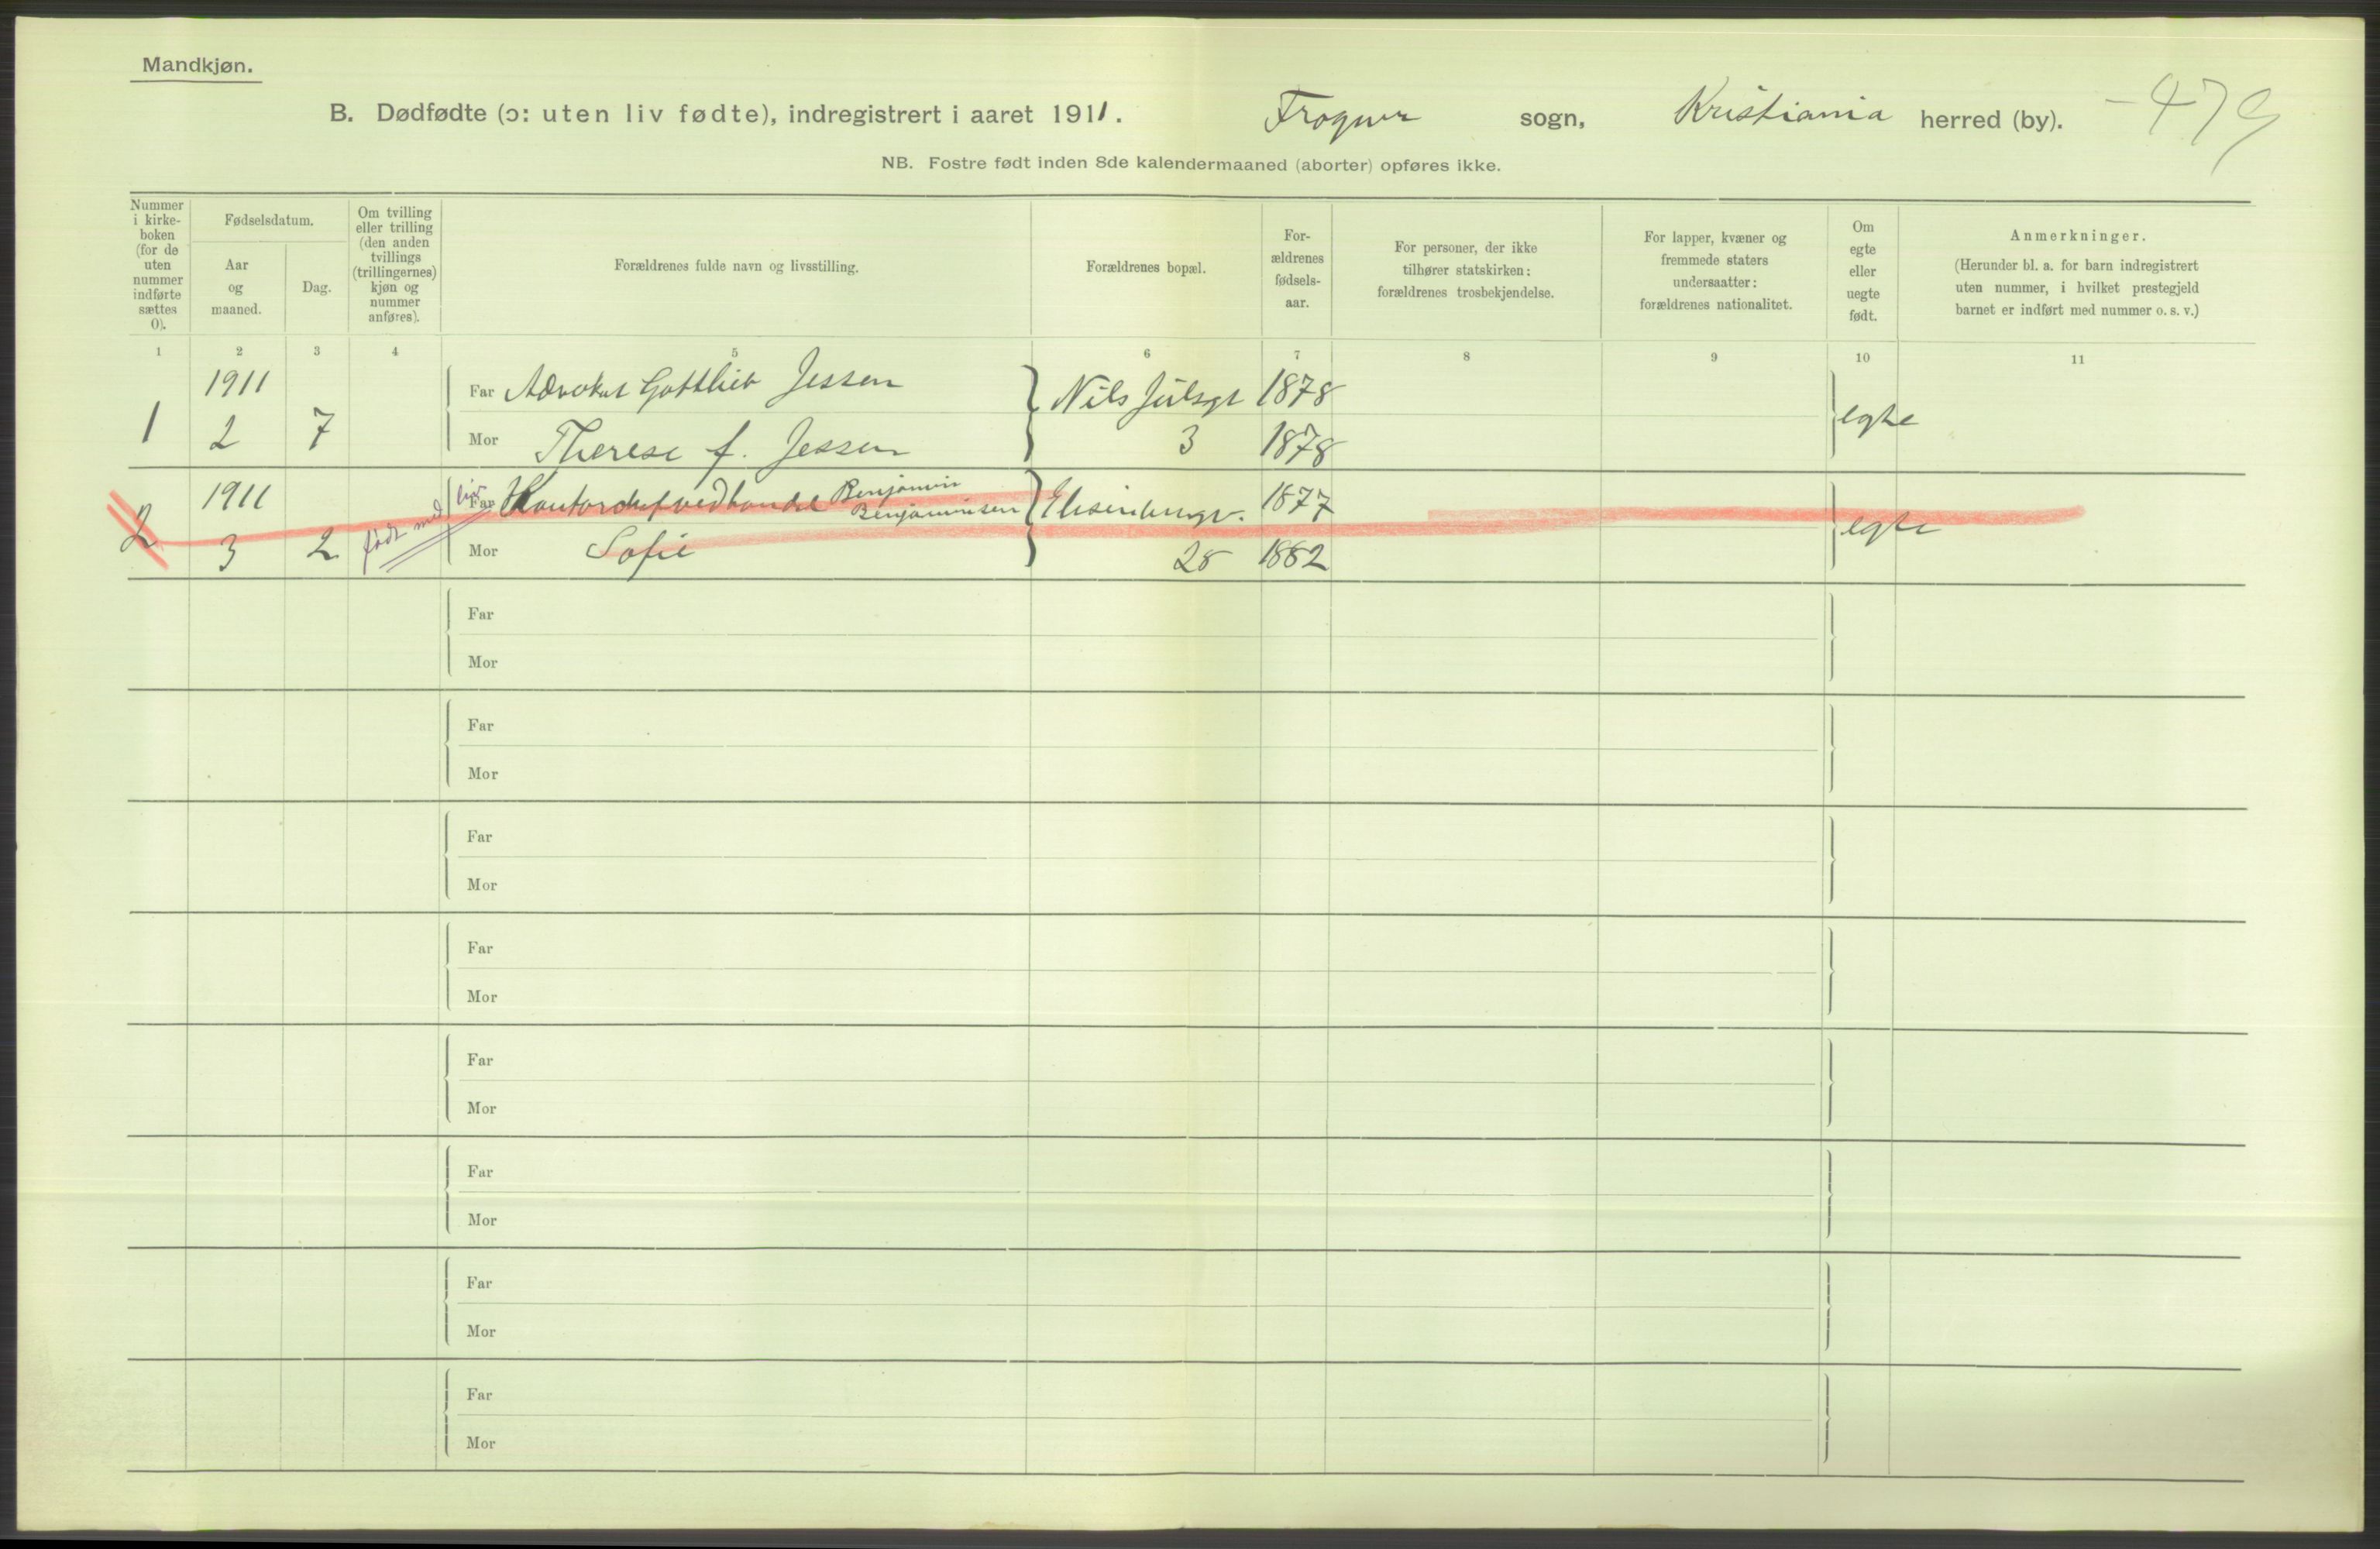 Mandkjøn.
B. Dødfødte (ɔ: uten liv fødte), indregistrert i aaret 1911. Frogner sogn, Kristiania herred (by). – 479
NB. Fostre født inden 8de kalendermaaned (aborter) opføres ikke.
Nummer i kirke-boken (for de uten nummer indførte sættes 0).
Fødselsdatum.
Aar og maaned.
Dag.
Om tvilling eller trilling (den anden tvillings (trillingernes) kjøn og nummer anføres).
Forældrenes fulde navn og livsstilling.
Forældrenes bopæl.
For-ældrenes fødsels-aar.
For personer, der ikke tilhører statskirken: forældrenes trosbekjendelse.
For lapper, kvæner og fremmede staters undersaatter: forældrenes nationalitet.
Om egte eller uegte født.
Anmerkninger.
(Herunder bl. a. for barn indregistrert uten nummer, i hvilket prestegjeld barnet er indført med nummer o. s. v.)
1 2 3 4 5 6 7 8 9 10 11
1911 Far Advokat Gottlieb Jessen Nils Julsgt 1878
1 2 7 Mor Therese f. Jessen 3 1878 egte
1911 født med liv Far Kontorchef ved handel Benjamin Benjaminsen Elisenbergv. 1877
2 3 2 Mor Sofie 28 1882 egte
Far
Mor
Far
Mor
Far
Mor
Far
Mor
Far
Mor
Far
Mor
Far
Mor
Far
Mor